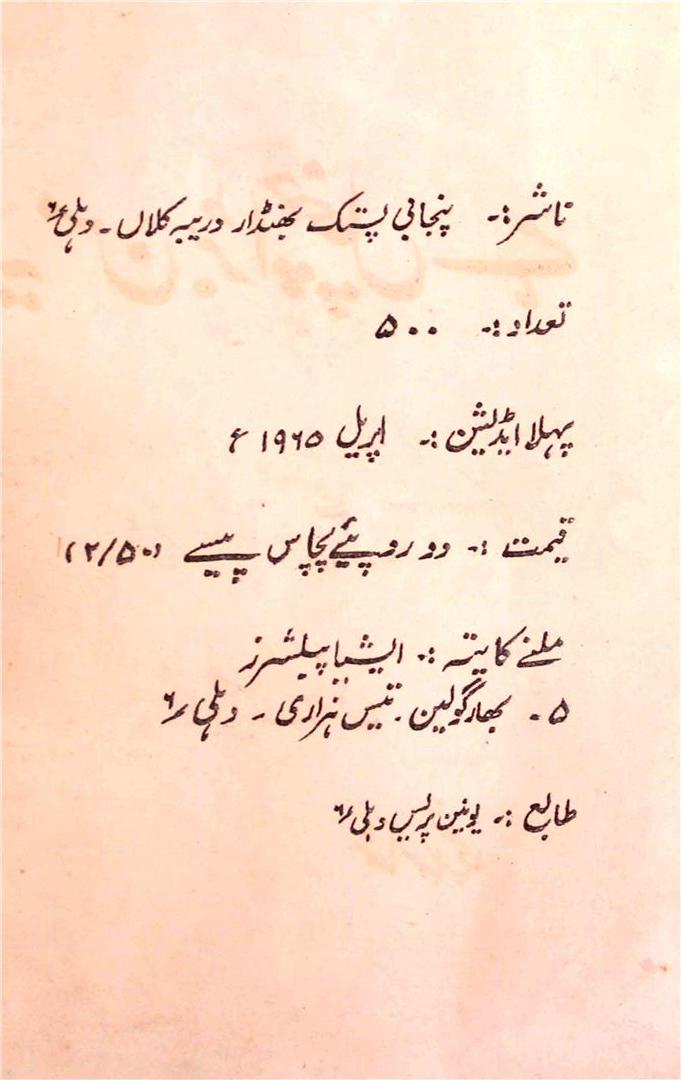 ناشر :۔ پنجابی پستک بھنڈار دریبہ کلاں ۔ دہلی ۶
تعداد :۔ ۵۰۰
پہلا ایڈیشن :۔ اپریل ۱۹۶۵ ء
قیمت :۔ دو روپئے پچاس پیسے (۲/۵۰)
ملنے کا پتہ :۔ ایشیا پبلشرز
۵ ۔ بھارگو لین ۔ تیس ہزاری ۔ دہلی/۶
طابع :۔ یونین پریس دہلی/۶